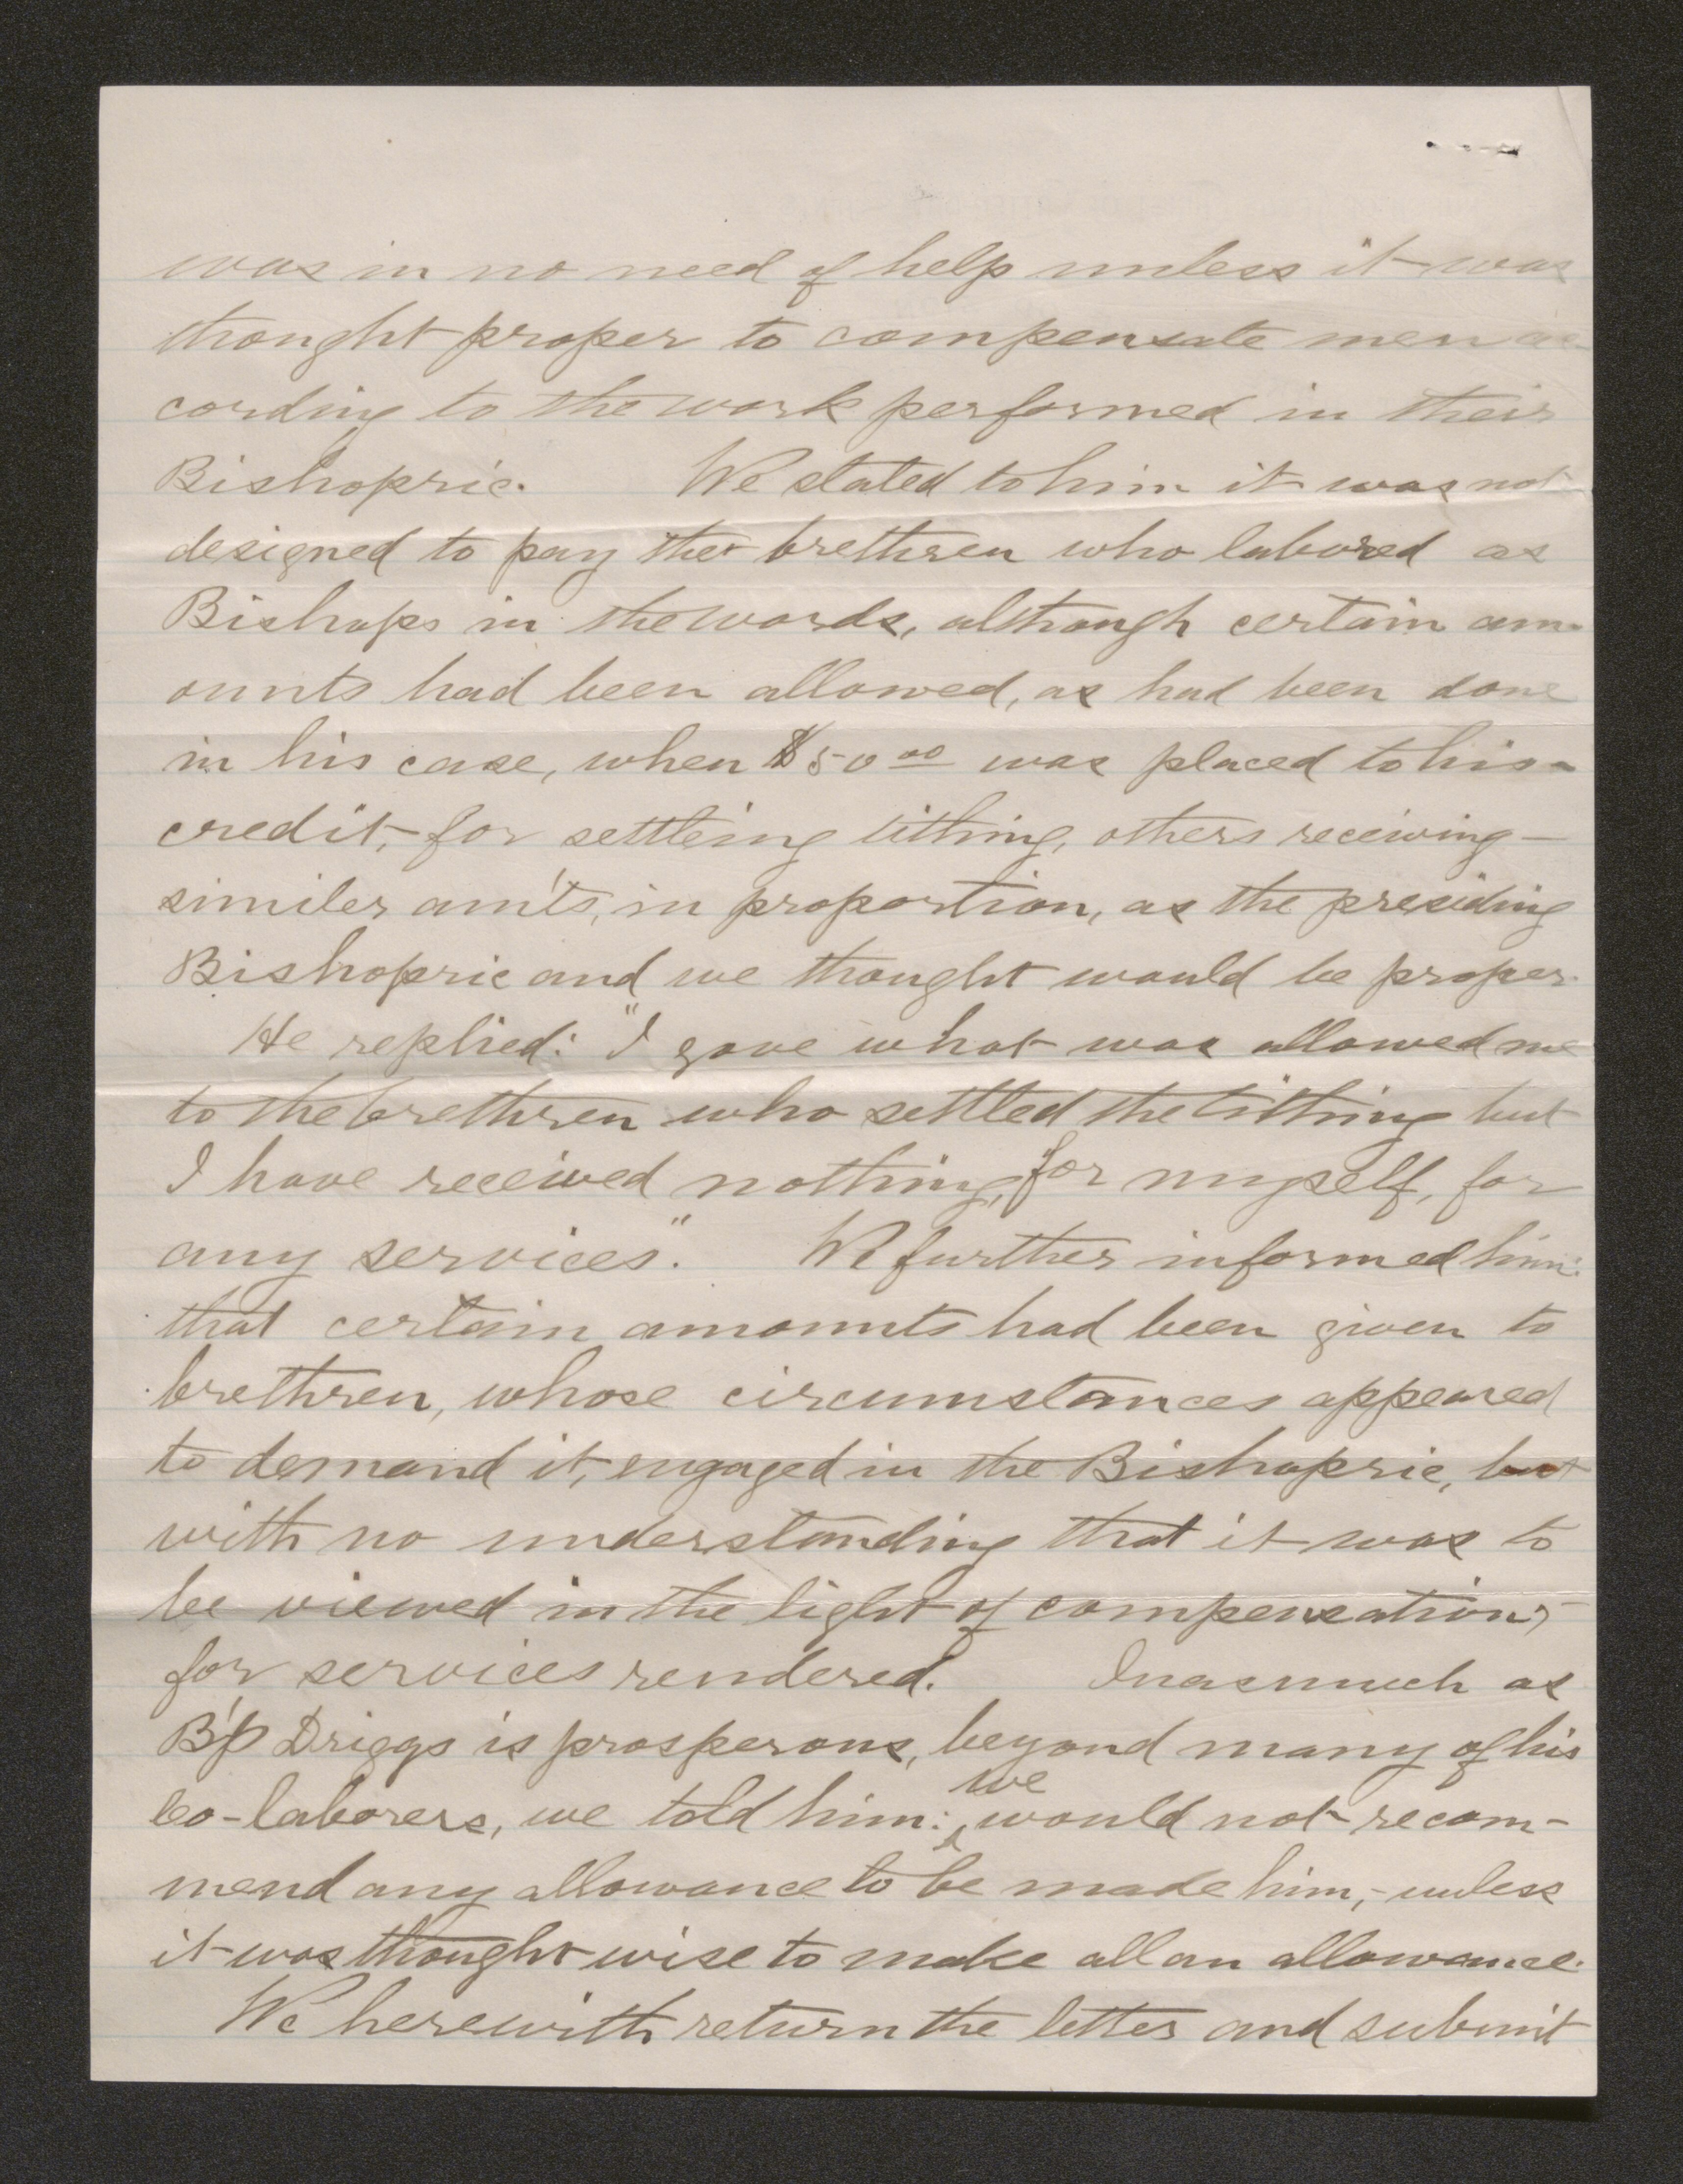 was in no need of help unless it was
thought proper to compensate men ac
cording to the work performed in their
Bishopric. We stated to him it was not
designed to pay the brethren who labored as
Bishops in the wards, although certain am-
ounts had been allowed, as had been done
in his case, when $50 00 was placed to his
credit, for settleing tithing, others receiving
similer am'ts, in proportion, as the presiding
Bishopric and we thought would be proper.
He replied: "I gave what was allowed me
to the brethren who settled the tithing but
I have received nothing, for myself, for
any services". We further informed him:
that certain amounts had been given to
brethren, whose circumstances appeared
to demand it, engaged in the Bishopric, but
with no understanding that it was to
be viewed in the light of compensation,
for services rendered. Inasmuch as
B'p Driggs is prosperous, beyond many of his
co-laborers, we told him: we would not recom-
mend any allowance to be made him, - unless
it was thought wise to make all an allowance.
We herewith return the letter and submit